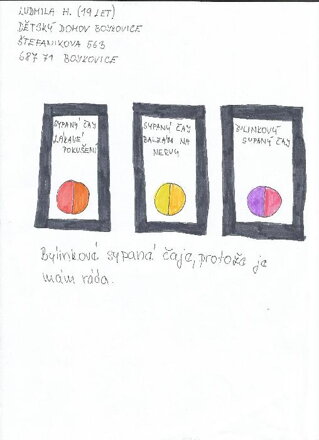 LUDMILA H. (19 LET)
DĚTSKÝ DOMOV BOJKOVICE
ŠTEFANIKOVA 563
687 71 BOJKOVICE
SYPANÝ ČAJ
LÁKAVÉ
POKUŠENÍ
SYPANÝ ČAJ
BALZÁM NA
NERVY
BILINKOVÝ
SYPANÝ ČAJ
Bylinkové sypané čaje, protože je
mám ráda.